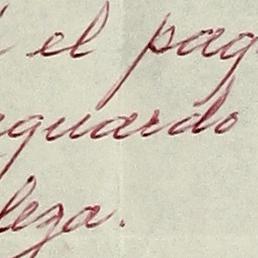 el pag
guardo
leza.